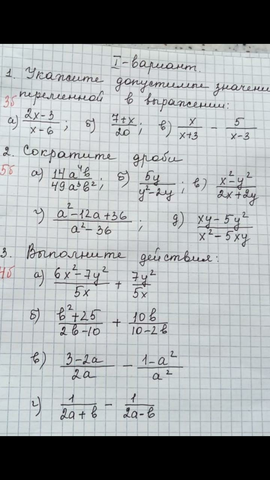 I-вариант.
1. Укажите допустимые значени
3б переменной в выражении:
а) (2x-3)/(x-6); б) (7+x)/20; в) x/(x+3) - 5/(x-3)
2. Сократите дроби
5б а) 14a⁴b/49a³b²; б) 5y/(y²-2y); в) (x²-y²)/(2x+2y)
г) (a²-12a+36)/(a²-36); д) (xy-5y²)/(x²-5xy)
3. Выполните действия:
4б а) (6x²-7y²)/5x + 7y²/5x
б) (b²+25)/(2b-10) + 10b/(10-2b)
в) (3-2a)/2a - (1-a²)/a²
г) 1/(2a+b) - 1/(2a-b)